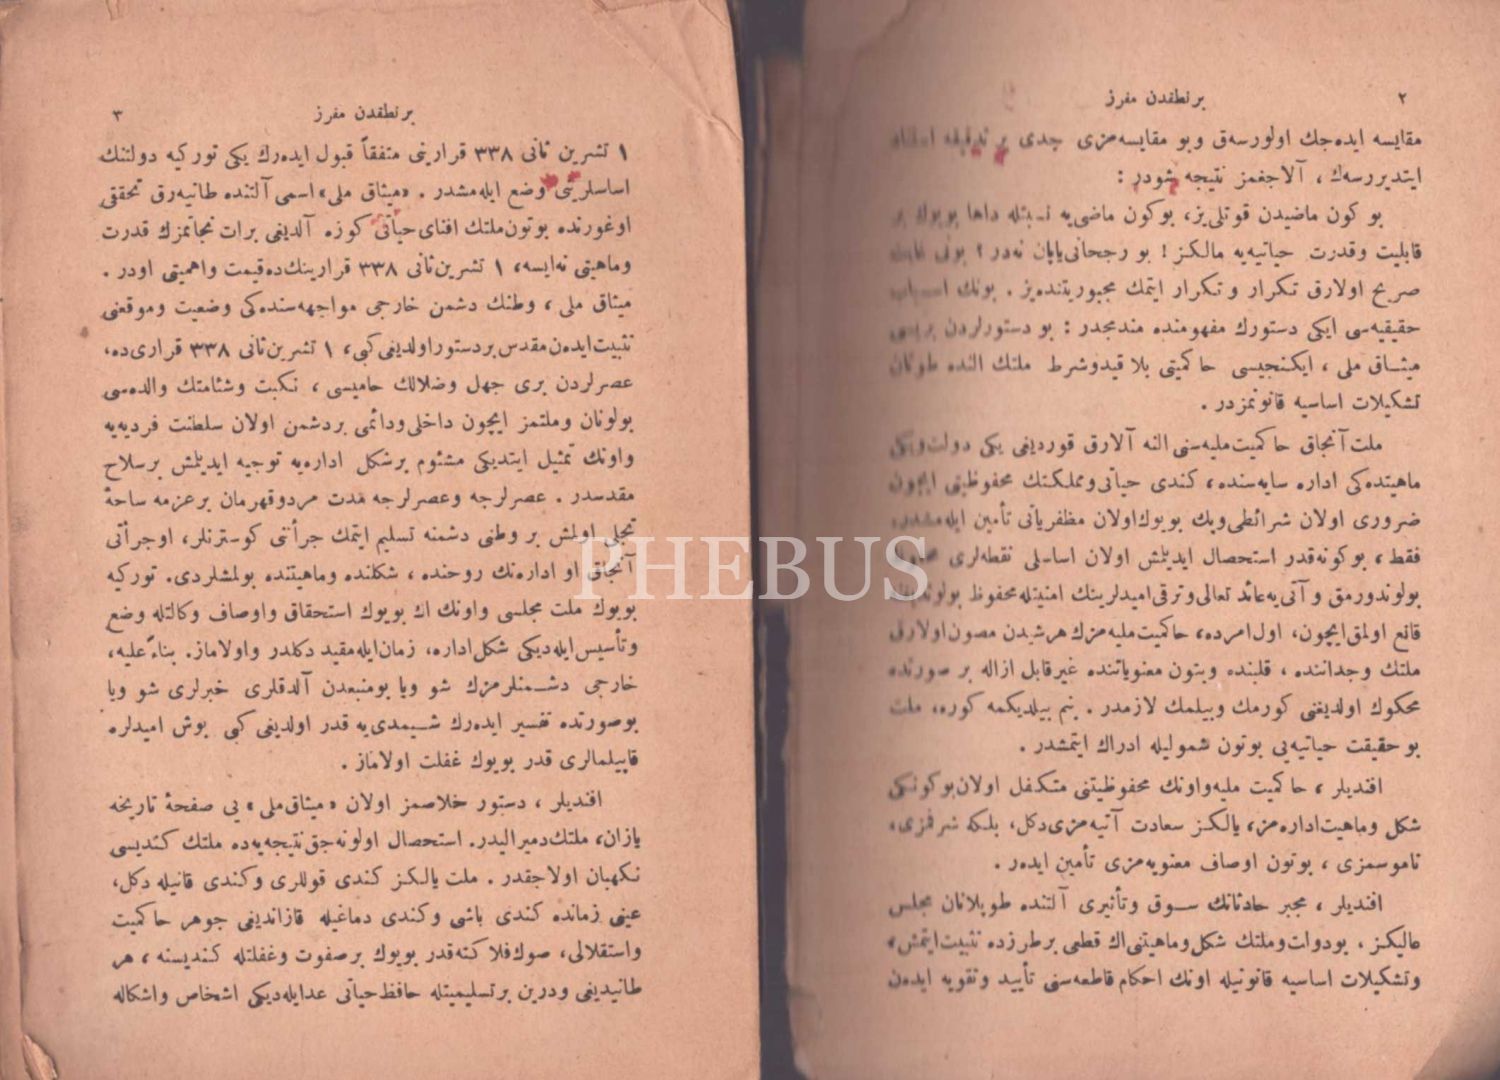 ٢
بر نطقدن مفرز
مقايسه ايده‌جك اولورسه‌ق وبو مقايسه‌مزى جدى بر تدقيقه استناد
ايتديررسه‌ك ، آلاجغمز نتيجه شودر :
بو كون ماضيدن قوتلى‌يز، بوكون ماضى‌يه نسبتله داها بويوك بر
قابليت وقدرت حياتيه‌يه مالكز ! بو رجحانى‌ياپان نه‌در ؟ بونى غايت
صريح اولارق تكرار و تكرار ايتمك مجبوريتنده‌يز . بونك اسباب
حقيقيه‌سى ايكى دستورك مفهومنده مندمجدر : بو دستورلردن بريسى
ميثاق ملى ، ايكنجيسى حاكميتى بلا قيدوشرط ملتك النده طوتان
تشكيلات اساسيه قانونمزدر .
ملت آنجاق حاكميت‌مليه‌سنى النه آلارق قورديغى يكى دولت‌ويكى
ماهيتده‌كى اداره سايه‌سنده ، كندى حياتى‌ومملكتنك محفوظيتى ايچون
ضرورى اولان شرائطى‌وپك بويوك‌اولان مظفرياتى تأمين ايله‌مشدر.
فقط ، بوكونه‌قدر استحصال ايديلمش اولان اساسلى نقطه‌لرى محفوظ
بولوندورمق و آتى‌يه‌عائد تعالى‌وترقى اميدلرينك امنيتله محفوظ بولوندیغنه
قانع اولمق‌ايچون، اول‌امرده، حاكميت‌مليه‌مزك هرشيدن مصون‌اولارق
ملتك وجداننده ، قلبنده وبتون معنوياتنده غيرقابل ازاله بر صورتده
محكوك اولديغنى كورمك وبيلمك لازمدر . بنم بيلديكمه كوره، ملت
بو حقيقت حياتيه‌يى بوتون شموليله ادراك ايتمشدر .
افنديلر ، حاكميت مليه‌واونك محفوظيتنى متكفل اولان‌بوكونكى
شكل وماهيت‌اداره‌مز، يالكز سعادت آتيه‌مزى‌دكل، بلكه شرفمزى،
ناموسمزى ، بوتون اوصاف معنويه‌مزى تأمين ايده‌ر .
افنديلر ، مجبر حادثاتك سوق وتأثيرى آلتنده طوپلانان مجلس
عاليكز . بودولت‌وملتك شكل‌وماهيتنى‌اك قطعى برطرزده تثبيت‌ايتمش،
وتشكيلات اساسيه قانونيله اونك احكام قاطعه‌سنى تأييد وتقويه ايده‌ن
بر نطقدن مفرز
٣
١ تشرين ثانى ٣٣٨ قرارينى متفقاً قبول ايده‌رك يكى توركيه دولتنك
اساسلرينى وضع ايله‌مشدر . «ميثاق ملى» اسمى آلتنده طانيه‌رق تحققى
اوغورنده بوتون‌ملتك افناى حياتى كوزه آلديغى برات نجاتمزك قدرت
وماهيتى نه‌ايسه، ١ تشرين‌ثانى ٣٣٨ قرارينك‌ده‌قيمت واهميتى اودر .
ميثاق ملى ، وطنك دشمن خارجى مواجهه‌سنده‌كى وضعيت وموقعنى
تثبيت‌ايده‌ن‌مقدس بردستوراولديغى‌كبى، ١ تشرين‌ثانى ٣٣٨ قرارى‌ده،
عصرلردن برى جهل وضلالك حاميسى ، نكبت وشئامتك والده‌سى
بولونان وملتمز ايچون داخلى‌ودائمى بردشمن اولان سلطنت فرديه‌يه
واونك تمثيل ايتديكى مشئوم برشكل اداره‌يه توجيه ايديلمش برسلاح
مقدسدر . عصرلرجه وعصرلرجه مدت مردوقهرمان برعزمه ساحهٔ
تجلى اولمش بر وطنى دشمنه تسليم ايتمك جرأتنى كوسترنلر، اوجرأتى
آنجاق او اداره‌نك روحنده ، شكلنده وماهيتنده بولمشلردى. توركيه
بويوك ملت مجلسى واونك اك بويوك استحقاق واوصاف وكالتله وضع
وتأسيس‌ايله‌ديكى شكل‌اداره، زمان‌ايله‌مقيد دكلدر واولاماز. بناءً عليه،
خارجى دشمنلرمزك شو ويا بومنبعدن آلدقلرى خبرلرى شو ويا
بوصورتده تفسير ايده‌رك شيمدى‌يه قدر اولديغى كبى بوش اميدلره
قاپيلمالرى قدر بويوك غفلت اولاماز .
افنديلر ، دستور خلاصمز اولان «ميثاق‌ملى» يى صفحهٔ تاريخه
يازان، ملتك‌دمير اليدر. استحصال اولونه‌جق‌نتيجه‌يه‌ده ملتك كنديسى
نكهبان اولاجقدر . ملت يالكز كندى قوللرى وكندى قانيله دكل،
عينى زمانده كندى باشى وكندى دماغيله قازانديغى جوهر حاكميت
واستقلالى، صوك‌فلاكته‌قدر بويوك برصفوت وغفلتله كنديسنه ، هر
طانيديغى ودرين برتسليميتله حافظ‌حياتى عدايله‌ديكى اشخاص واشكاله
PHEBUS